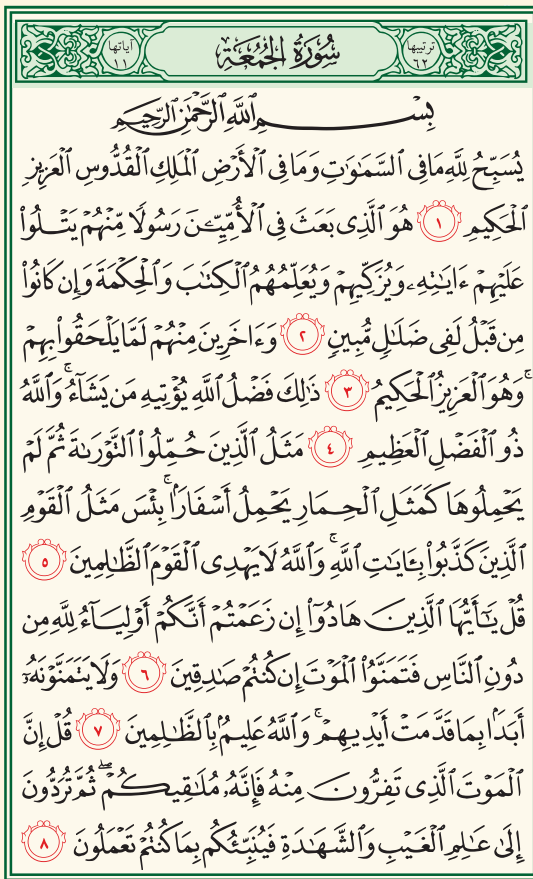 ترتيبها ٦٢ سُورَةُ الجُمُعَةِ آياتها ١١
بِسْمِ ٱللَّهِ ٱلرَّحْمَٰنِ ٱلرَّحِيمِ
يُسَبِّحُ لِلَّهِ مَا فِي ٱلسَّمَٰوَٰتِ وَمَا فِي ٱلْأَرْضِ ٱلْمَلِكِ ٱلْقُدُّوسِ ٱلْعَزِيزِ
ٱلْحَكِيمِ ١ هُوَ ٱلَّذِي بَعَثَ فِي ٱلْأُمِّيِّـۧنَ رَسُولًا مِّنْهُمْ يَتْلُوا۟
عَلَيْهِمْ ءَايَٰتِهِۦ وَيُزَكِّيهِمْ وَيُعَلِّمُهُمُ ٱلْكِتَٰبَ وَٱلْحِكْمَةَ وَإِن كَانُوا۟
مِن قَبْلُ لَفِي ضَلَٰلٍ مُّبِينٍ ٢ وَءَاخَرِينَ مِنْهُمْ لَمَّا يَلْحَقُوا۟ بِهِمْ
ۚ وَهُوَ ٱلْعَزِيزُ ٱلْحَكِيمُ ٣ ذَٰلِكَ فَضْلُ ٱللَّهِ يُؤْتِيهِ مَن يَشَآءُ ۚ وَٱللَّهُ
ذُو ٱلْفَضْلِ ٱلْعَظِيمِ ٤ مَثَلُ ٱلَّذِينَ حُمِّلُوا۟ ٱلتَّوْرَىٰةَ ثُمَّ لَمْ
يَحْمِلُوهَا كَمَثَلِ ٱلْحِمَارِ يَحْمِلُ أَسْفَارًۢا ۚ بِئْسَ مَثَلُ ٱلْقَوْمِ
ٱلَّذِينَ كَذَّبُوا۟ بِـَٔايَٰتِ ٱللَّهِ ۚ وَٱللَّهُ لَا يَهْدِي ٱلْقَوْمَ ٱلظَّٰلِمِينَ ٥
قُلْ يَٰٓأَيُّهَا ٱلَّذِينَ هَادُوٓا۟ إِن زَعَمْتُمْ أَنَّكُمْ أَوْلِيَآءُ لِلَّهِ مِن
دُونِ ٱلنَّاسِ فَتَمَنَّوُا۟ ٱلْمَوْتَ إِن كُنتُمْ صَٰدِقِينَ ٦ وَلَا يَتَمَنَّوْنَهُۥٓ
أَبَدًۢا بِمَا قَدَّمَتْ أَيْدِيهِمْ ۚ وَٱللَّهُ عَلِيمٌۢ بِٱلظَّٰلِمِينَ ٧ قُلْ إِنَّ
ٱلْمَوْتَ ٱلَّذِي تَفِرُّونَ مِنْهُ فَإِنَّهُۥ مُلَٰقِيكُمْ ۖ ثُمَّ تُرَدُّونَ
إِلَىٰ عَٰلِمِ ٱلْغَيْبِ وَٱلشَّهَٰدَةِ فَيُنَبِّئُكُم بِمَا كُنتُمْ تَعْمَلُونَ ٨